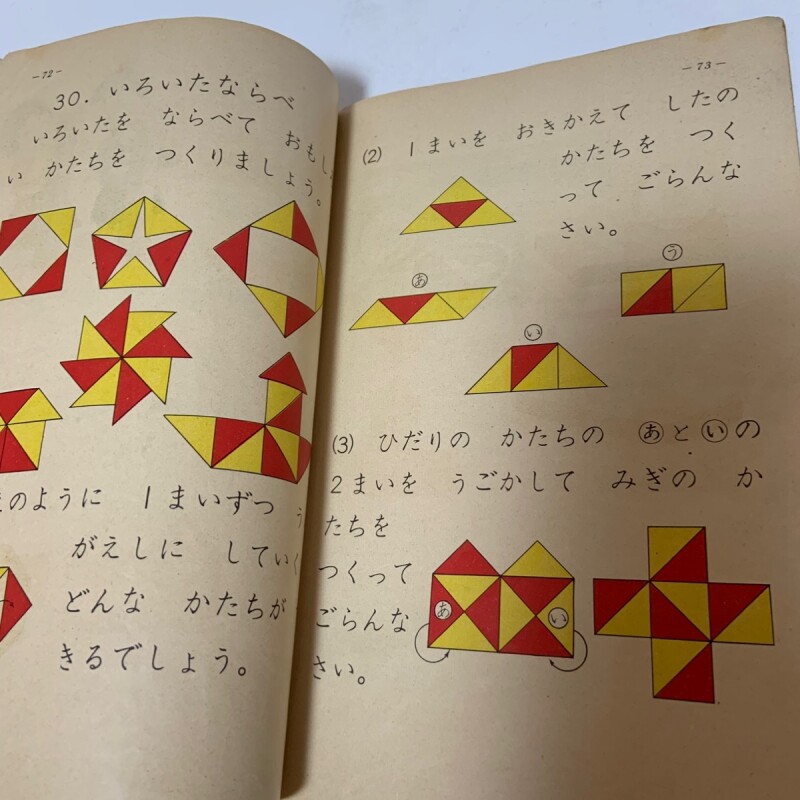 -72-
30. いろいたならべ
いろいたを ならべて おもし
い かたちを つくりましょう。
のように 1まいずつ う
がえしに していく
どんな かたちが
きるでしょう。
-73-
(2) 1まいを おきかえて したの
かたちを つく
って ごらんな
さい。
あ
う
い
(3) ひだりの かたちの あといの
2まいを うごかして みぎの か
たちを
つくって
ごらんな
さい。
あ
い